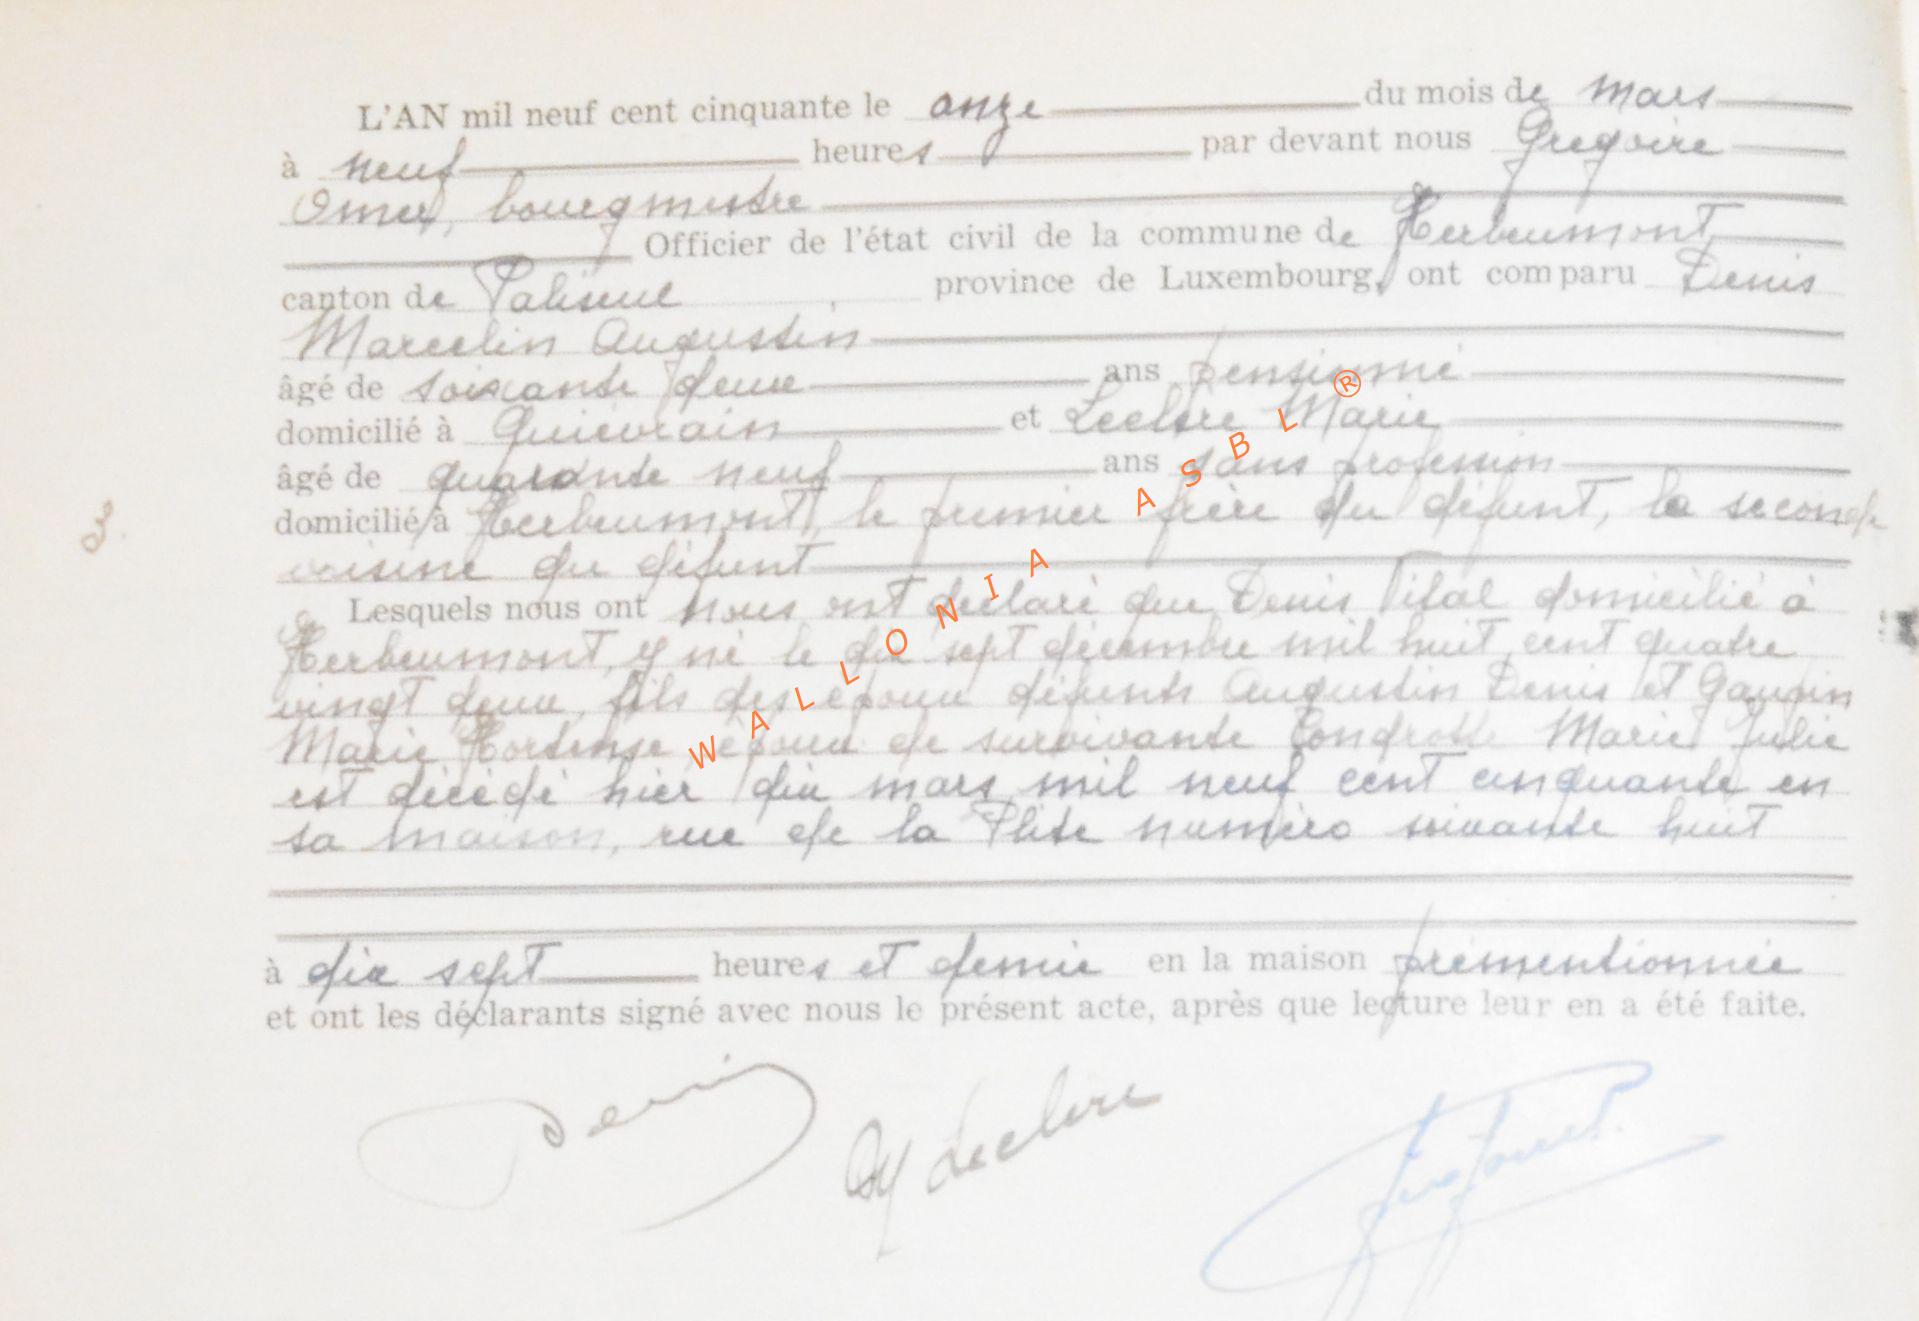 L'AN mil neuf cent cinquante le onze du mois de mars
à neuf heures par devant nous Gregoire
Omer, bourgmestre
Officier de l'état civil de la commune de Herbeumont
canton de Paliseul province de Luxembourg, ont comparu Denis
Marcelin Augustin
âgé de soixante deux ans pensionné
domicilié à Quievrain et Leclère Marie
âgé de quarante neuf ans sans profession
domicilié à Herbeumont, le premier frère du défunt, la seconde
voisine du défunt
3.
Lesquels nous ont nous ont déclaré que Denis Vital domicilié à
Herbeumont, y né le dix sept décembre mil huit cent quatre
vingt deux, fils des époux défunts Augustin Denis et
Marie Hortense, époux de survivante Marie Julie
est décédé hier dix mars mil neuf cent cinquante en
sa maison, rue de la numéro soixante huit
à dix sept heures et demie en la maison prémentionnée
et ont les déclarants signé avec nous le présent acte, après que lecture leur en a été faite.
Denis Leclère
WALLONIA ASBL ®